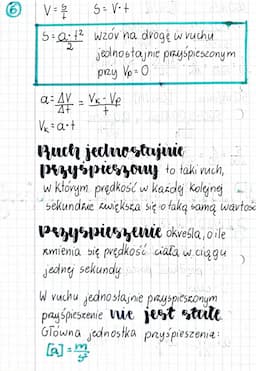 6
V = s/t   S = V·t
S = a·t²/2 wzór na drogę w ruchu
jednostajnie przyśpieszonym
przy Vp = 0
a = ΔV/Δt = Vk - Vp/t
Vk = a·t
Ruch jednostajnie
przyspieszony to taki ruch,
w którym prędkość w każdej kolejnej
sekundzie zwiększa się o taką samą wartość
Przyspieszenie określa, o ile
zmienia się prędkość ciała w ciągu
jednej sekundy
W ruchu jednostajnie przyspieszonym
przyśpieszenie nie jest stałe
Główna jednostka przyśpieszenia:
[a] = m/s²